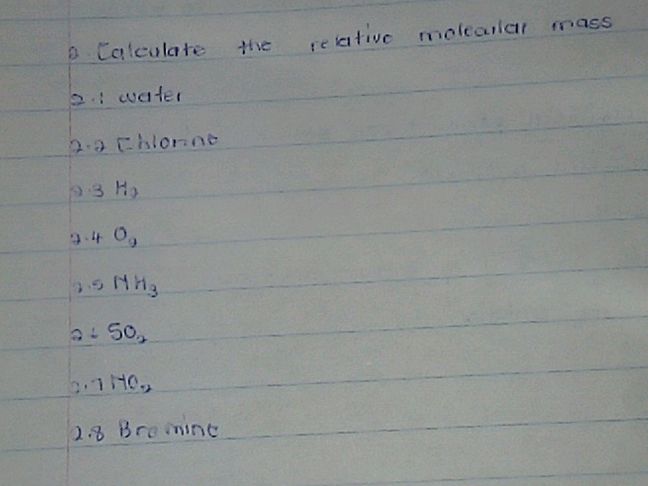 2. Calculate the relative molecular mass
2.1 water
2.2 Chlorine
2.3 H₂
2.4 O₂
2.5 NH₃
2.6 SO₂
2.7 NO₂
2.8 Bromine